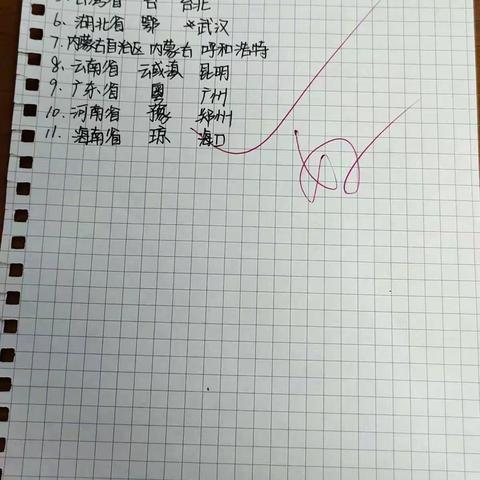 5.台湾省 台 台北
6.湖北省 鄂 *武汉
7.内蒙古自治区 内蒙古 呼和浩特
8.云南省 云或滇 昆明
9.广东省 粤 广州
10.河南省 豫 郑州
11.海南省 琼 海口